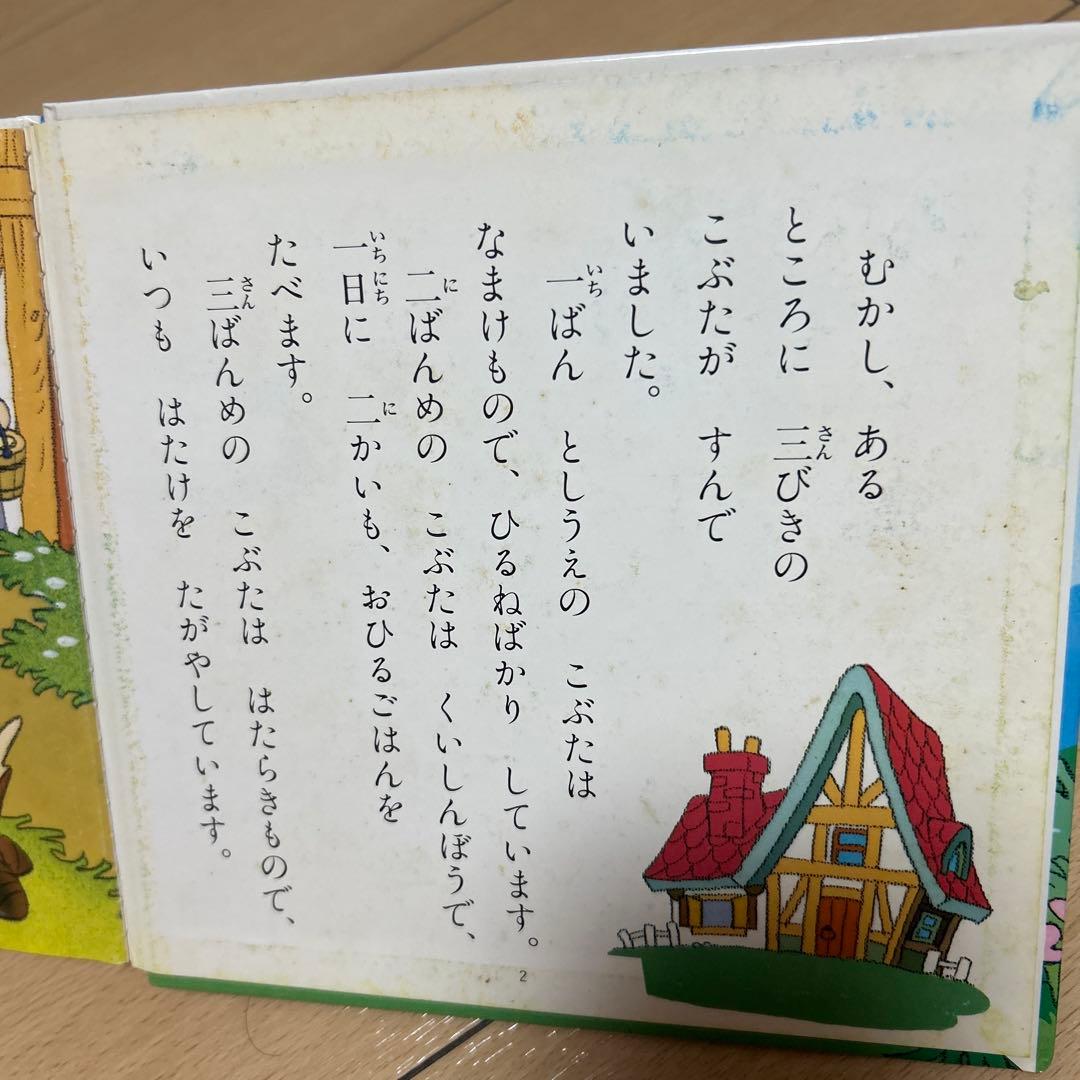 むかし、ある
ところに 三びきの
さん
こぶたが すんで
いました。
一ばん としうえの こぶたは
いち
なまけもので、ひるねばかり しています。
二ばんめの こぶたは くいしんぼうで、
に
一日に 二かいも、おひるごはんを
いちにち に
たべます。
三ばんめの こぶたは はたらきもので、
さん
いつも はたけを たがやしています。
2